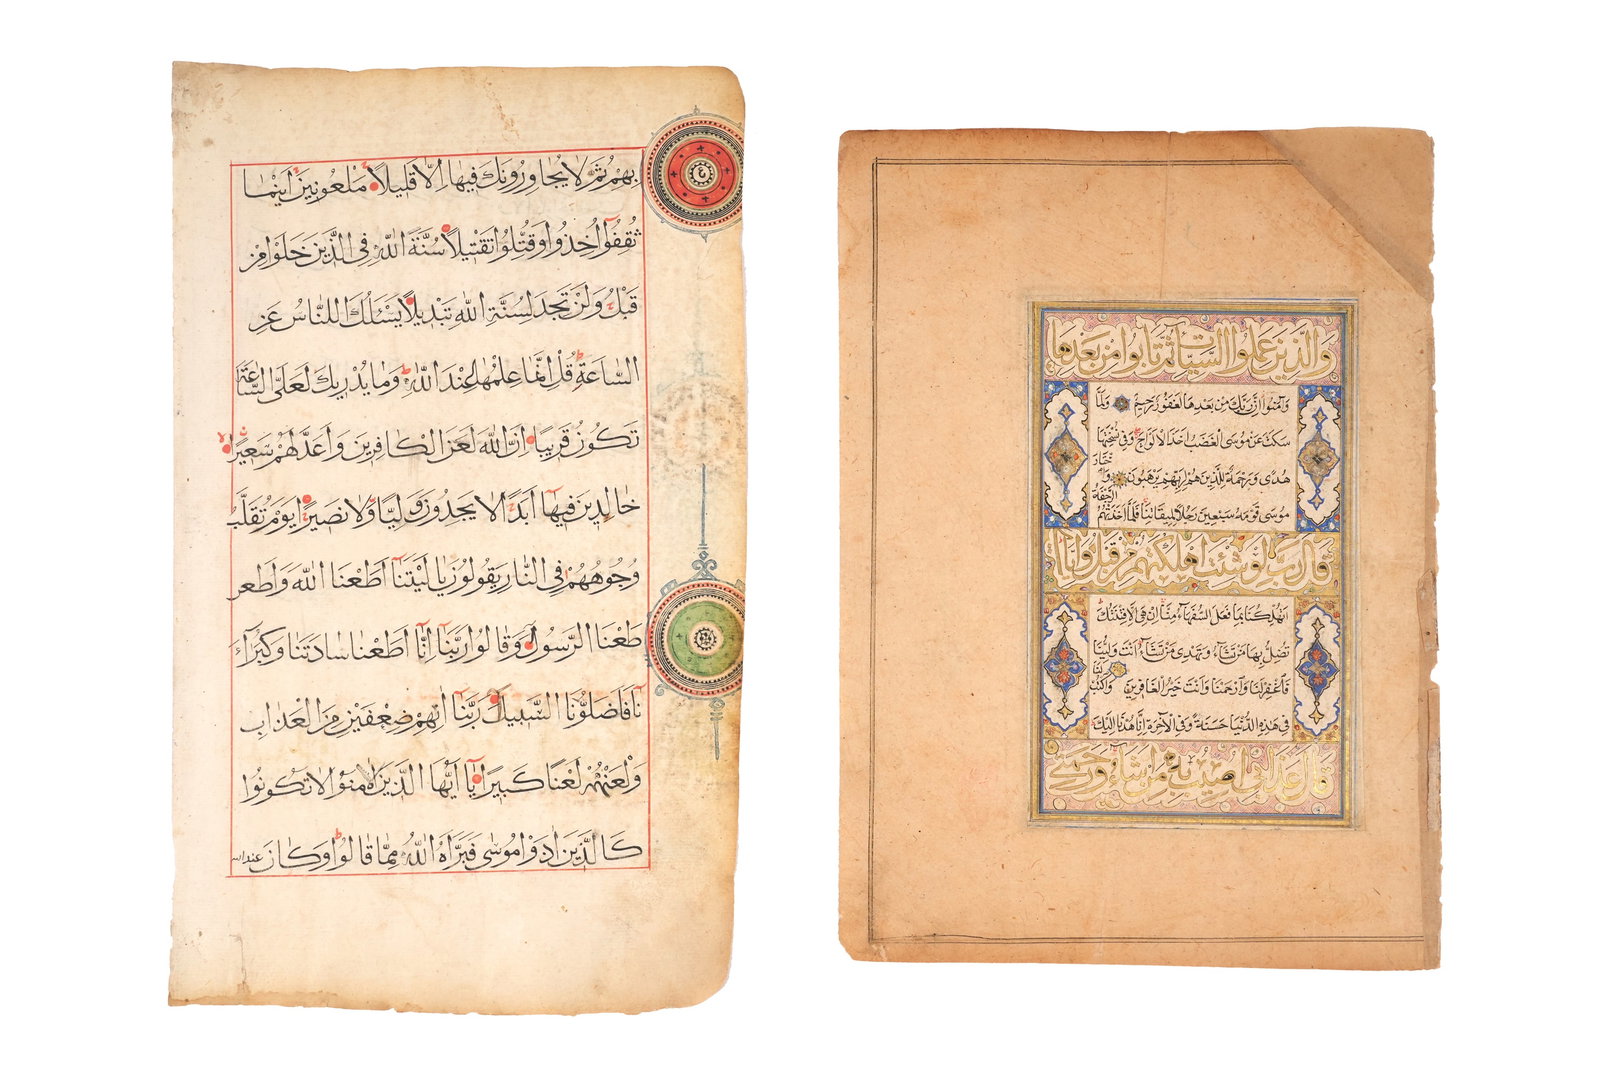 بِهِمْ ثُمَّ لَا يُجَاوِرُونَكَ فِيهَا إِلَّا قَلِيلًا مَلْعُونِينَ أَيْنَمَا
ثُقِفُوا أُخِذُوا وَقُتِّلُوا تَقْتِيلًا سُنَّةَ اللَّهِ فِي الَّذِينَ خَلَوْا مِنْ
قَبْلُ وَلَنْ تَجِدَ لِسُنَّةِ اللَّهِ تَبْدِيلًا يَسْئَلُكَ النَّاسُ عَنِ
السَّاعَةِ قُلْ إِنَّمَا عِلْمُهَا عِنْدَ اللَّهِ وَمَا يُدْرِيكَ لَعَلَّ السَّاعَةَ
تَكُونُ قَرِيبًا إِنَّ اللَّهَ لَعَنَ الْكَافِرِينَ وَأَعَدَّ لَهُمْ سَعِيرًا
خَالِدِينَ فِيهَا أَبَدًا لَا يَجِدُونَ وَلِيًّا وَلَا نَصِيرًا يَوْمَ تُقَلَّبُ
وُجُوهُهُمْ فِي النَّارِ يَقُولُونَ يَا لَيْتَنَا أَطَعْنَا اللَّهَ وَأَطَعْ
طَعْنَا الرَّسُولَا وَقَالُوا رَبَّنَا إِنَّا أَطَعْنَا سَادَتَنَا وَكُبَرَاءَ
نَا فَأَضَلُّونَا السَّبِيلَا رَبَّنَا آتِهِمْ ضِعْفَيْنِ مِنَ الْعَذَابِ
وَالْعَنْهُمْ لَعْنًا كَبِيرًا يَا أَيُّهَا الَّذِينَ آمَنُوا لَا تَكُونُوا
كَالَّذِينَ آذَوْا مُوسَى فَبَرَّأَهُ اللَّهُ مِمَّا قَالُوا وَكَانَ عند الله
وَالَّذِينَ عَمِلُوا السَّيِّئَاتِ ثُمَّ تَابُوا مِنْ بَعْدِهَا
وَآمَنُوا إِنَّ رَبَّكَ مِنْ بَعْدِهَا لَغَفُورٌ رَحِيمٌ وَلَمَّا
سَكَتَ عَنْ مُوسَى الْغَضَبُ أَخَذَ الْأَلْوَاحَ وَفِي نُسْخَتِهَا
هُدًى وَرَحْمَةٌ لِلَّذِينَ هُمْ لِرَبِّهِمْ يَرْهَبُونَ وَاخْتَارَ
مُوسَى قَوْمَهُ سَبْعِينَ رَجُلًا لِمِيقَاتِنَا فَلَمَّا أَخَذَتْهُمُ الرَّجْفَةُ
قَالَ رَبِّ لَوْ شِئْتَ أَهْلَكْتَهُمْ مِنْ قَبْلُ وَإِيَّايَ
أَتُهْلِكُنَا بِمَا فَعَلَ السُّفَهَاءُ مِنَّا إِنْ هِيَ إِلَّا فِتْنَتُكَ
تُضِلُّ بِهَا مَنْ تَشَاءُ وَتَهْدِي مَنْ تَشَاءُ أَنْتَ وَلِيُّنَا
فَاغْفِرْ لَنَا وَارْحَمْنَا وَأَنْتَ خَيْرُ الْغَافِرِينَ وَاكْتُبْ لَنَا
فِي هَذِهِ الدُّنْيَا حَسَنَةً وَفِي الْآخِرَةِ إِنَّا هُدْنَا إِلَيْكَ
قَالَ عَذَابِي أُصِيبُ بِهِ مَنْ أَشَاءُ وَرَحْمَتِي